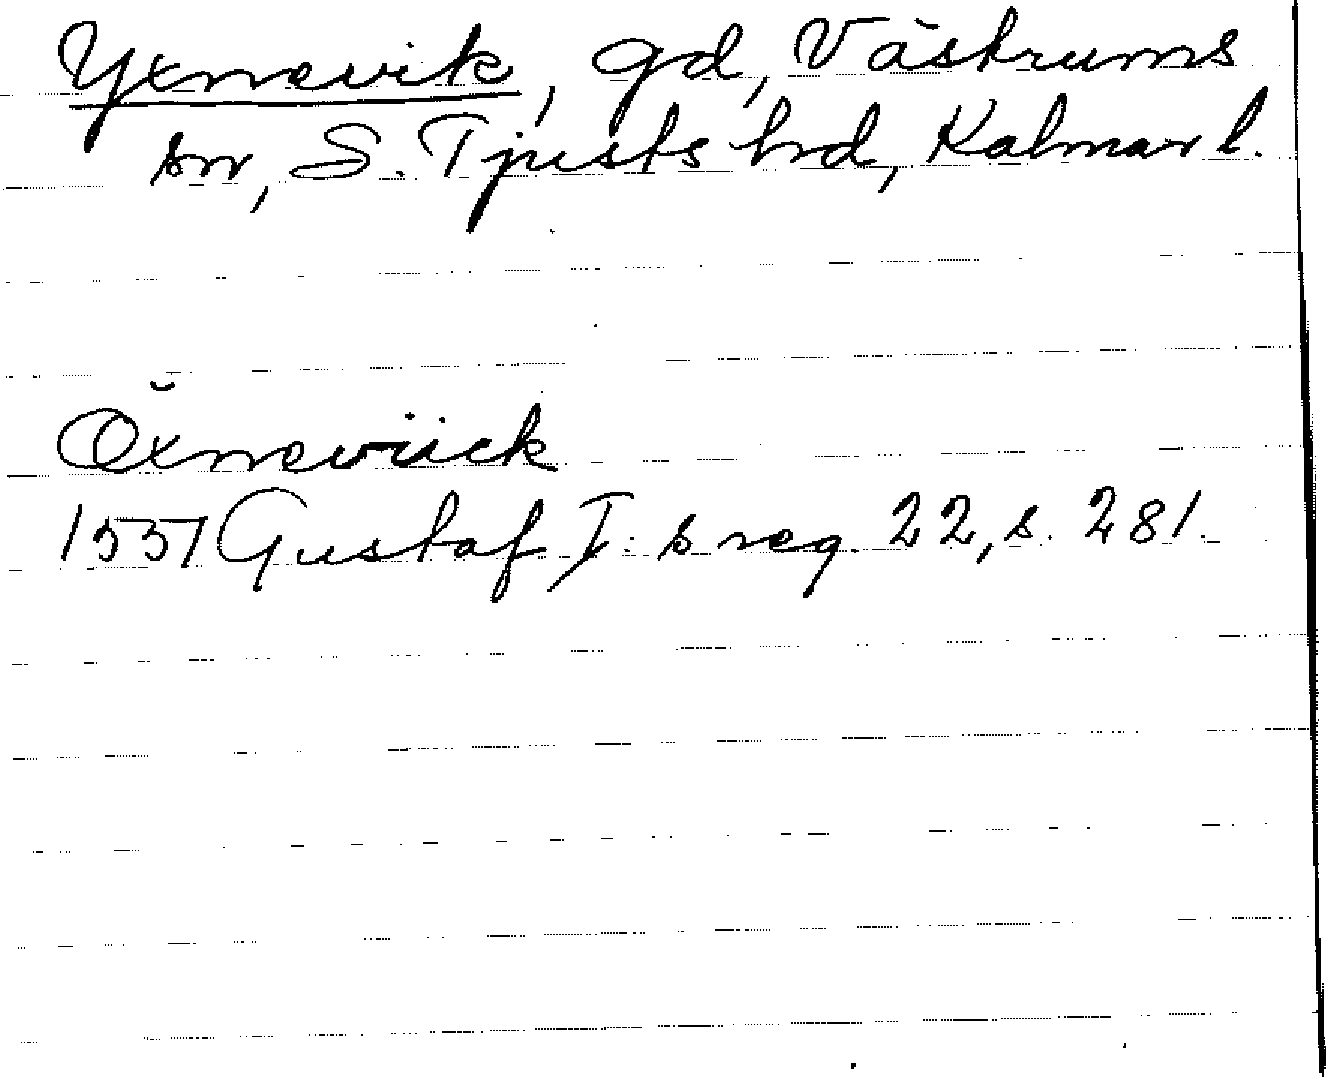 Yxnevik, gd, Västrums
sn, S. Tjusts hrd, Kalmar l.
Öxneviick
1551 Gustaf I:s reg. 22, s. 281.